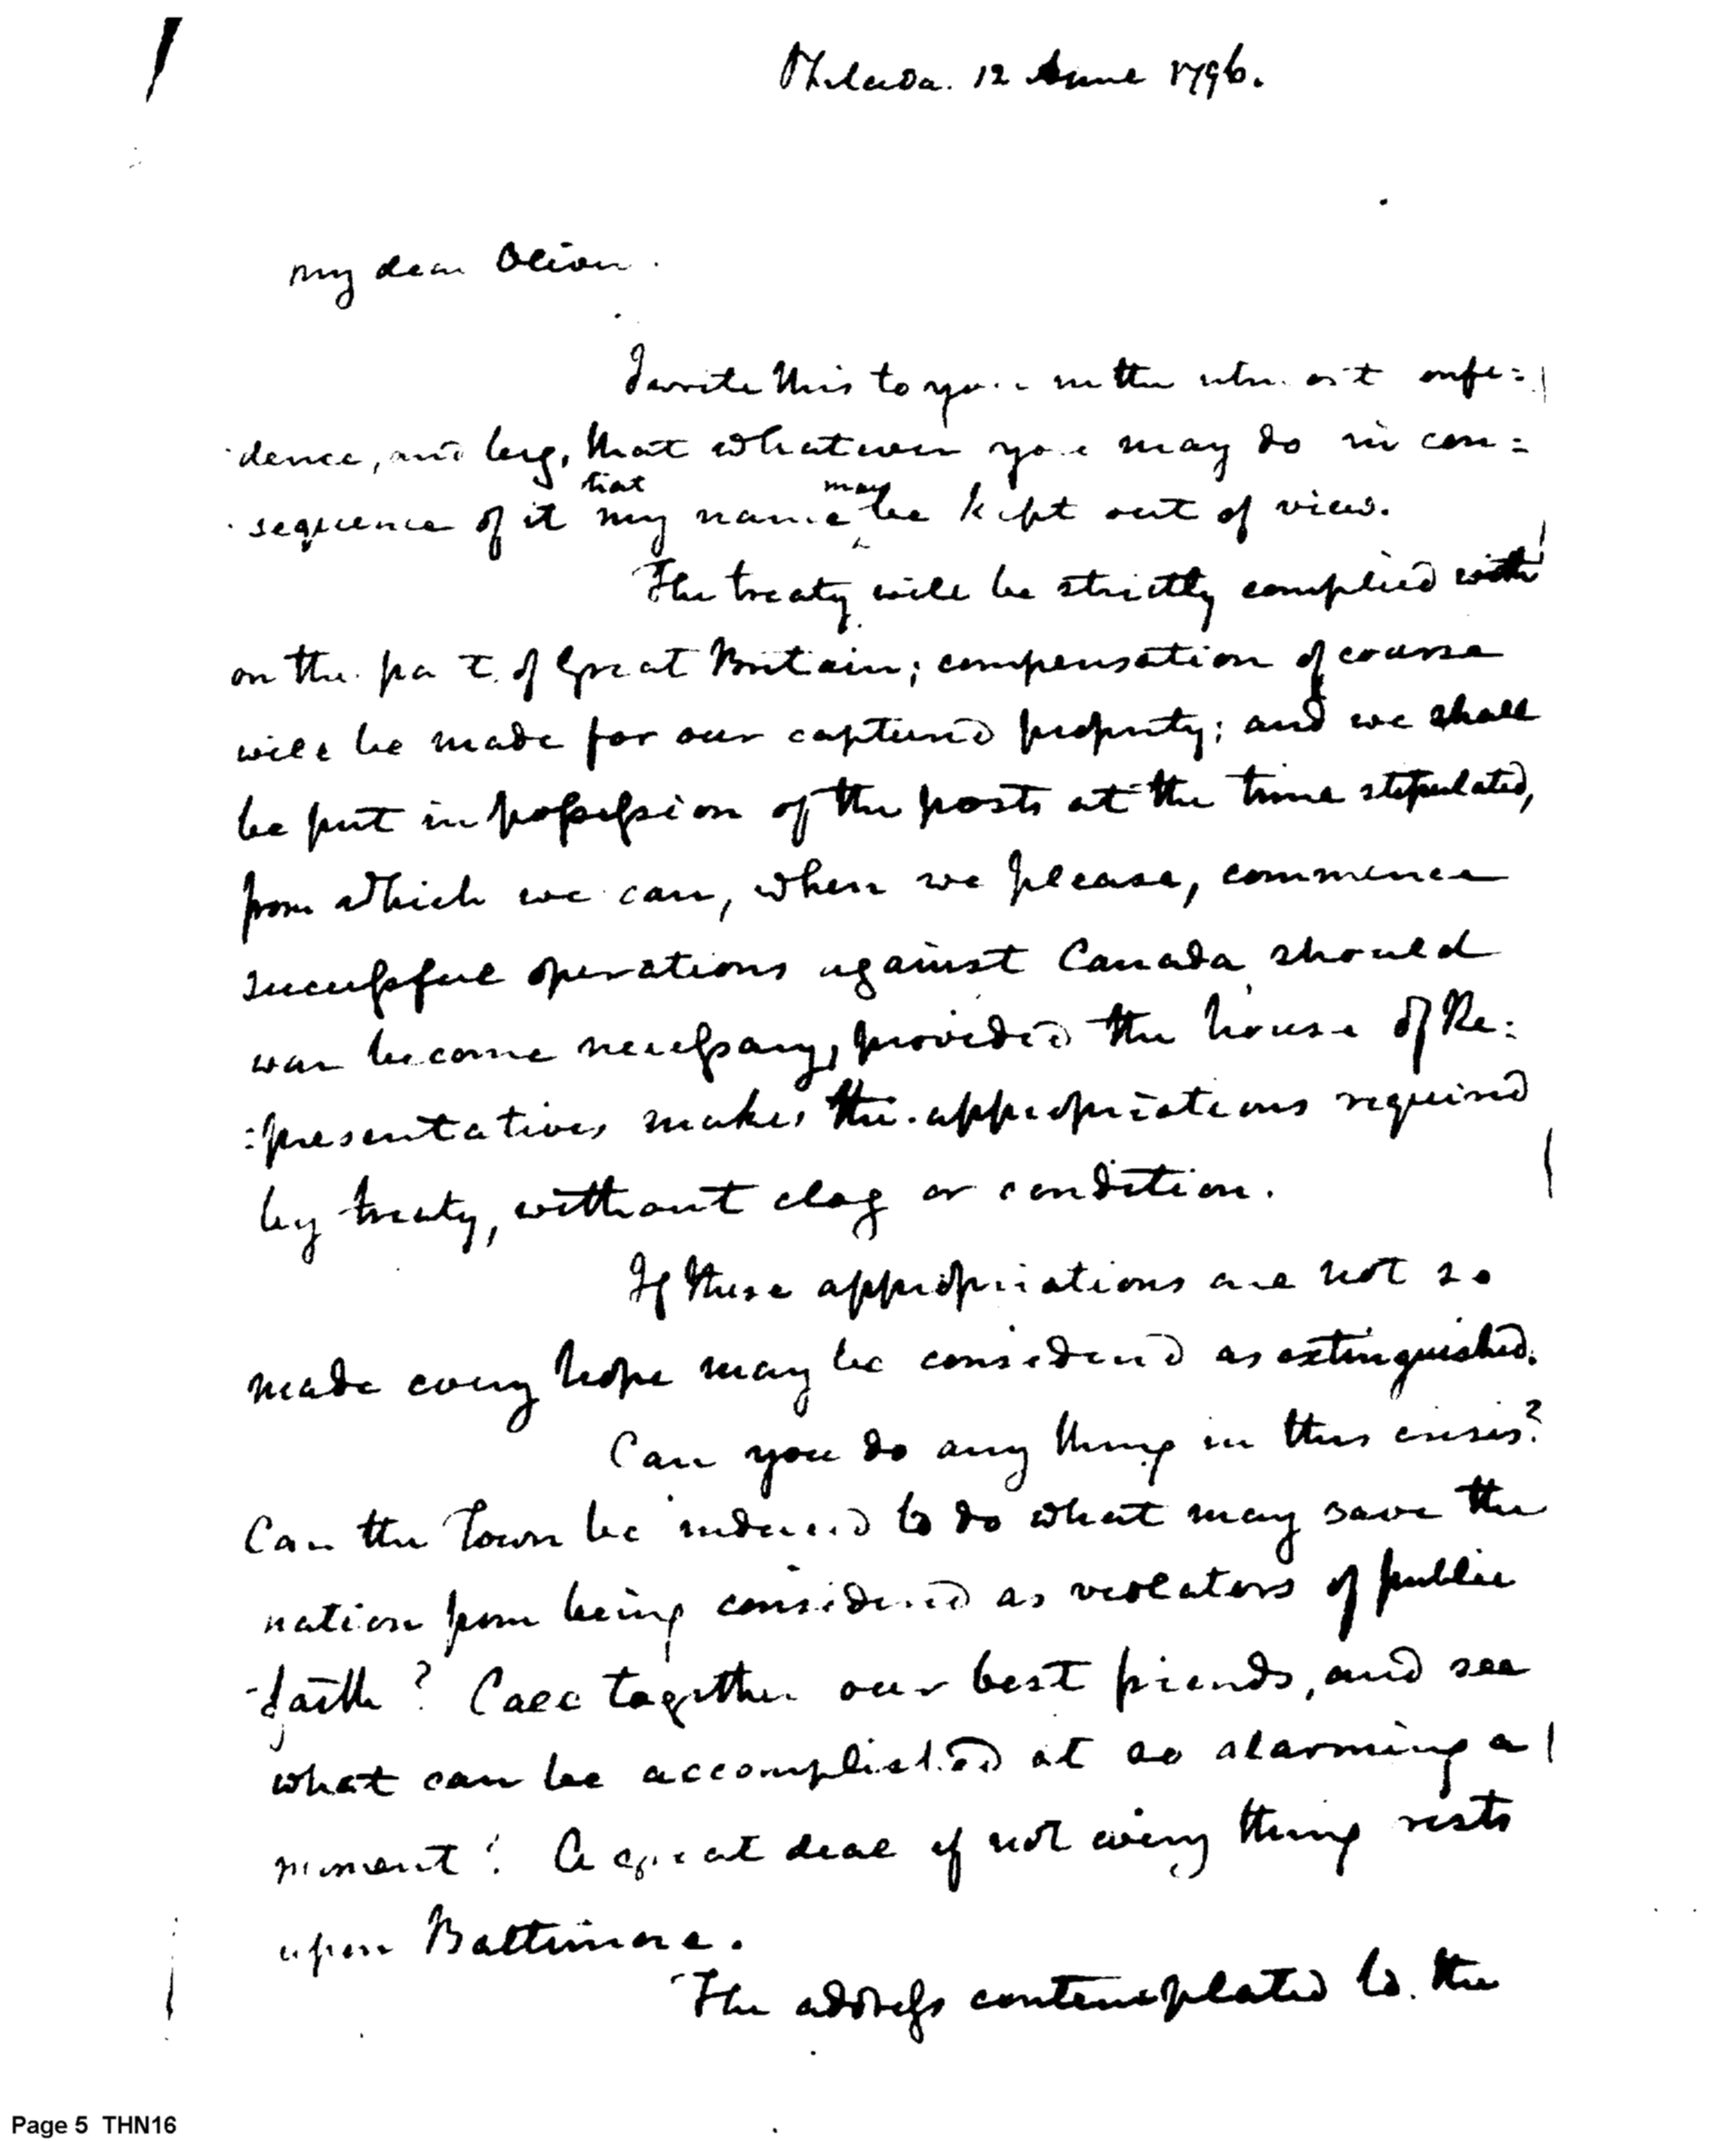 Philada. 12 June 1796.
My dear Oliver.
I write this to you in the utmost confi=
dence, and beg, that whatever you may do in con=
sequence of it that my name may be kept out of view.
The treaty will be strictly complied with
on the part of Great Britain; compensation of course
will be made for our captured property; and we shall
be put in possession of the posts at the time stipulated,
from which we can, when we please, commence
successful operations against Canada should
war become necessary, provided the house of Re=
=presentatives makes the appropriations required
by treaty, without clog or condition.
If these appropriations are not so
made every hope may be considered as extinguished.
Can you do any thing in this crisis?
Can the Town be induced to do what may save the
nation from being considered as violators of public
faith? Call together our best friends, and see
what can be accomplished at so alarming a
moment! A great deal if not every thing rests
upon Baltimore.
The address contemplated to the
Page 5 THN16